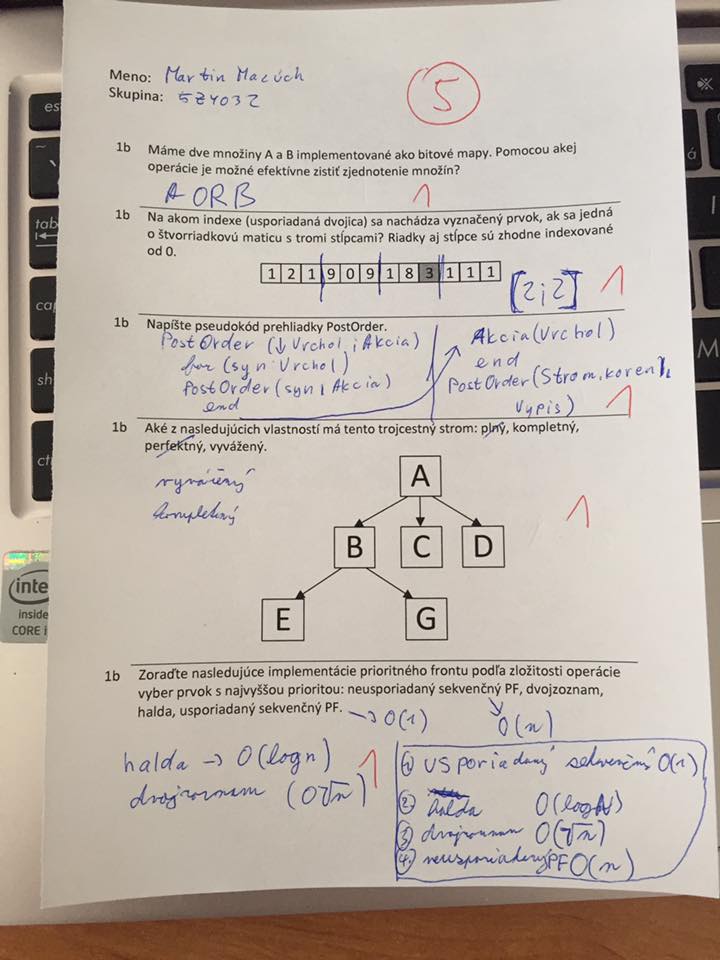 Meno: Martin Macúch
Skupina: 5ZY032
5
1b Máme dve množiny A a B implementované ako bitové mapy. Pomocou akej
operácie je možné efektívne zistiť zjednotenie množín?
A OR B
1
1b Na akom indexe (usporiadaná dvojica) sa nachádza vyznačený prvok, ak sa jedná
o štvorriadkovú maticu s tromi stĺpcami? Riadky aj stĺpce sú zhodne indexované
od 0.
1 2 1 9 0 9 1 8 3 1 1 1
[2;2] 1
1b Napíšte pseudokód prehliadky PostOrder.
PostOrder (↓Vrchol ; Akcia)
for (syn: Vrchol)
PostOrder (syn, Akcia)
end
Akcia (Vrchol)
end
PostOrder (Strom.koren,
Vypis) 1
1b Aké z nasledujúcich vlastností má tento trojcestný strom: plný, kompletný,
perfektný, vyvážený.
vyvážený
kompletný
1
A
B C D
E G
1b Zoraďte nasledujúce implementácie prioritného frontu podľa zložitosti operácie
vyber prvok s najvyššou prioritou: neusporiadaný sekvenčný PF, dvojzoznam,
halda, usporiadaný sekvenčný PF. → O(1) O(n)
halda → O(log n) 1
dvojzoznam (O√n)
1. usporiadaný sekvenčný O(1)
2. halda O(log N)
3. dvojzoznam O(√n)
4. neusporiadaný PF O(n)
esc
tab
cap
sh
ct
á
intel
inside
CORE i